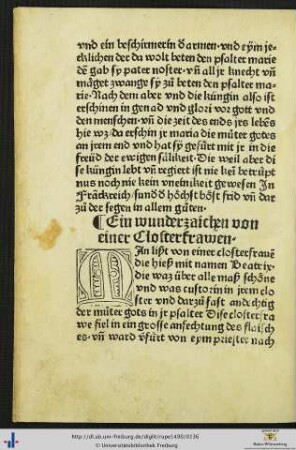 vnd ein beschirmerin d armen· vnd eym je-
cklichen der da wolt beten den psalter marie
dē gab sy pater noster· vñ all jr knecht vñ
mägtet zwange sy zů beten den psalter ma-
rie· Nach dem aber vnd die küngin also ist
erschinen in genad vnd glori vor gott vnd
den menschen· vñ die zeit des ends jrs lebēs
hie wz· da erschin jr maria die můter gotes
an jrem end vnd hat sy gefürt mit jr in die
freüd der ewigen sälikeit· Die weil aber di
se küngin lebt vñ regieret ist nie kei betrüpt
nus noch nie kein vneinikeit gewesen In
Franckreich / sund d höchst böst frid vñ dar
zů der segen in allem gůten·
¶ Ein wunderzaichen von
einer Closterfrawen·
MAn lißt von einer closterfrauē
die hieß mit namen Beatrix·
die waz über alle maß schöne
vnd was custorin in jrem clo
ster vnd darzů fast andechtig
der můter gots in jr psalter Dise closterfra
we fiel in ein grosse anfechtung des flaisch
es· vñ ward v̈fürt von eym priester nach
http://dl.ub.uni-freiburg.de/diglit/rupe1498/0236
© Universitätsbibliothek Freiburg
Baden-Württemberg